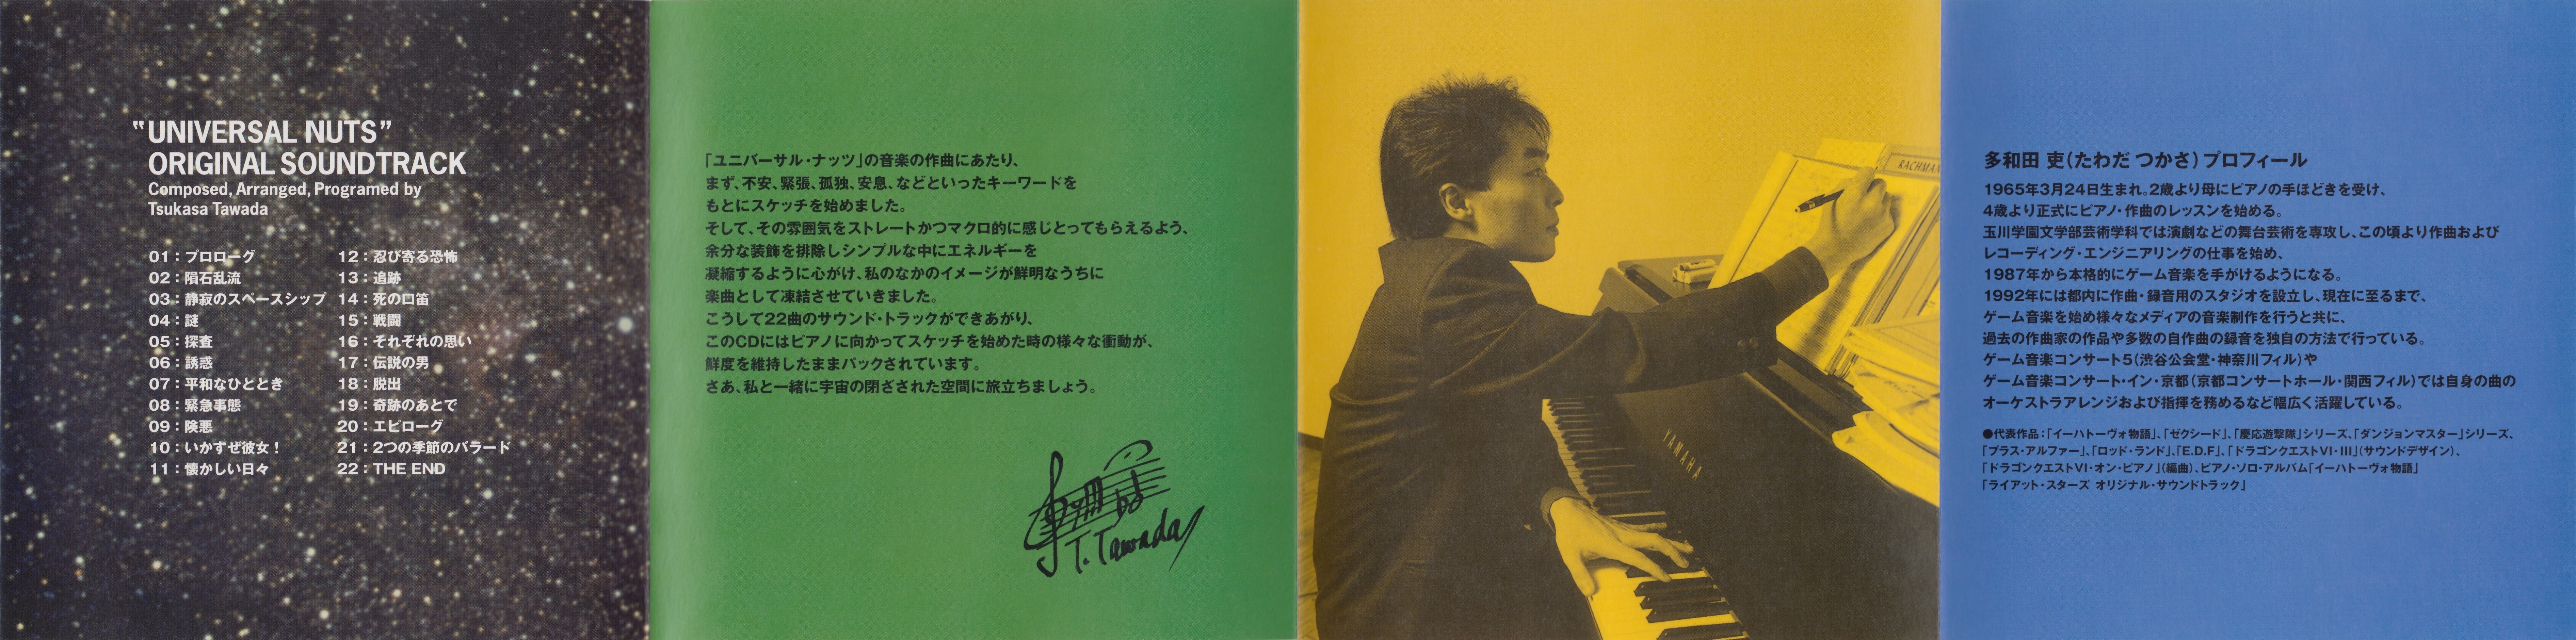 "UNIVERSAL NUTS"
ORIGINAL SOUNDTRACK
Composed, Arranged, Programed by
Tsukasa Tawada
01：プロローグ
02：隕石乱流
03：静寂のスペースシップ
04：謎
05：探査
06：誘惑
07：平和なひととき
08：緊急事態
09：険悪
10：いかすぜ彼女！
11：懐かしい日々
12：忍び寄る恐怖
13：追跡
14：死の口笛
15：戦闘
16：それぞれの思い
17：伝説の男
18：脱出
19：奇跡のあとで
20：エピローグ
21：2つの季節のバラード
22：THE END
「ユニバーサル・ナッツ」の音楽の作曲にあたり、
まず、不安、緊張、孤独、安息、などといったキーワードを
もとにスケッチを始めました。
そして、その雰囲気をストレートかつマクロ的に感じとってもらえるよう、
余分な装飾を排除しシンプルな中にエネルギーを
凝縮するように心がけ、私のなかのイメージが鮮明なうちに
楽曲として凍結させていきました。
こうして22曲のサウンド・トラックができあがり、
このCDにはピアノに向かってスケッチを始めた時の様々な衝動が、
鮮度を維持したままパックされています。
さあ、私と一緒に宇宙の閉ざされた空間に旅立ちましょう。
T. Tawada
RACHMAN
YAMAHA
多和田 吏（たわだ つかさ）プロフィール
1965年3月24日生まれ。2歳より母にピアノの手ほどきを受け、
4歳より正式にピアノ・作曲のレッスンを始める。
玉川学園文学部芸術学科では演劇などの舞台芸術を専攻し、この頃より作曲および
レコーディング・エンジニアリングの仕事を始め、
1987年から本格的にゲーム音楽を手がけるようになる。
1992年には都内に作曲・録音用のスタジオを設立し、現在に至るまで、
ゲーム音楽を始め様々なメディアの音楽制作を行うと共に、
過去の作曲家の作品や多数の自作曲の録音を独自の方法で行っている。
ゲーム音楽コンサート5（渋谷公会堂・神奈川フィル）や
ゲーム音楽コンサート・イン・京都（京都コンサートホール・関西フィル）では自身の曲の
オーケストラアレンジおよび指揮を務めるなど幅広く活躍している。
●代表作品：「イーハトーヴォ物語」、「ゼクシード」、「慶応遊撃隊」シリーズ、「ダンジョンマスター」シリーズ、
「プラス・アルファー」、「ロッド・ランド」、「E.D.F」、「ドラゴンクエストVI・III」（サウンドデザイン）、
「ドラゴンクエストVI・オン・ピアノ」（編曲）、ピアノ・ソロ・アルバム「イーハトーヴォ物語」
「ライアット・スターズ オリジナル・サウンドトラック」